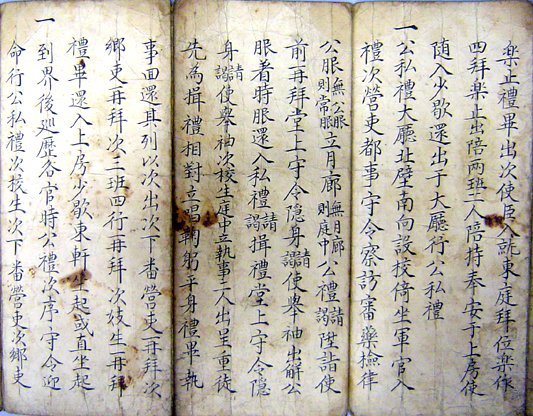 楽止禮畢出次使臣入就東庭拜位楽作
四拜楽止出陪兩班入陪持奉安于上房使
隨入少歇還出于大廳行公私禮
一公私禮大廳北壁南向設挍倚坐軍官入
禮次營吏都事守令察訪審藥撿律
公服無公服則常服立月廊無月廊則庭中公禮請謁陞詣使
前再拜堂上守令隱身請謁使舉袖出解公
服着時服還入私禮請謁揖禮堂上守令隱
身請謁使舉袖次校生庭中立執事二人出呈重徒
先為揖禮相對立唱鞠躬平身禮畢執
事面還其列以次出次下番營吏再拜次
鄉吏再拜次三班四行再拜次妓生再拜
禮畢還入上房少歇東軒坐起或直坐起
一到界後巡歷各官時公禮次序守令迎
命行公私禮次挍生次下番營吏次鄉吏